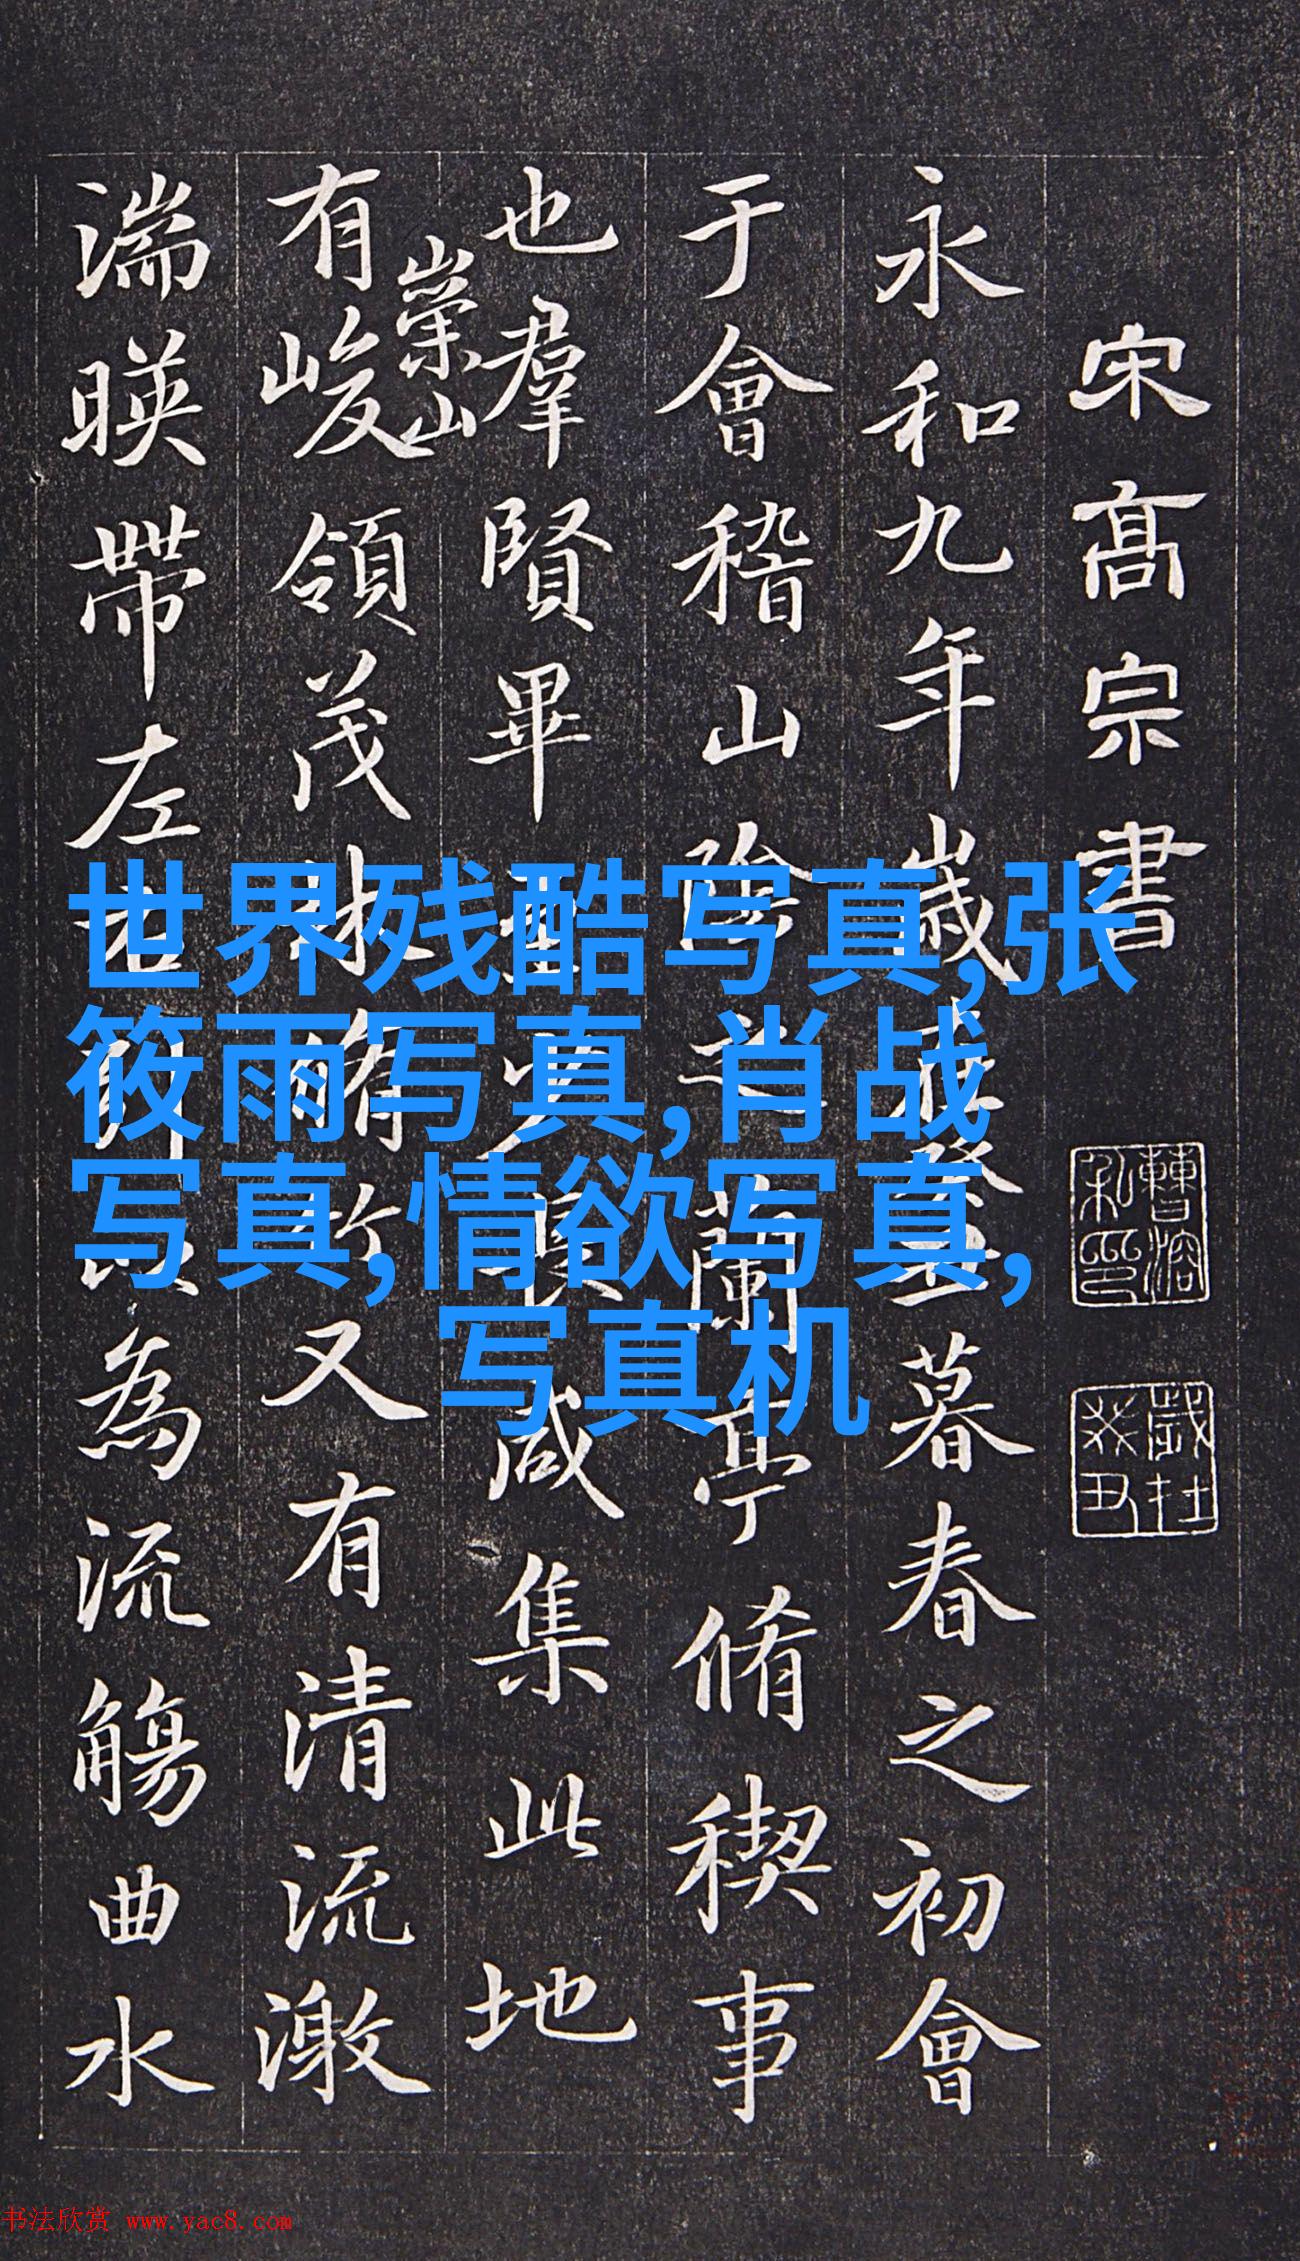 宋高宗書
曹溶私印
永和九年歲在癸丑暮春之初會
于會稽山陰之蘭亭脩稧事
也羣賢畢至少長咸集此地
崇山
有峻領茂林脩竹又有清流激
湍暎帶左右引以為流觴曲水
世界残酷写真,张
筱雨写真,肖战
写真,情欲写真,
写真机
书法欣赏 www.yac8.com